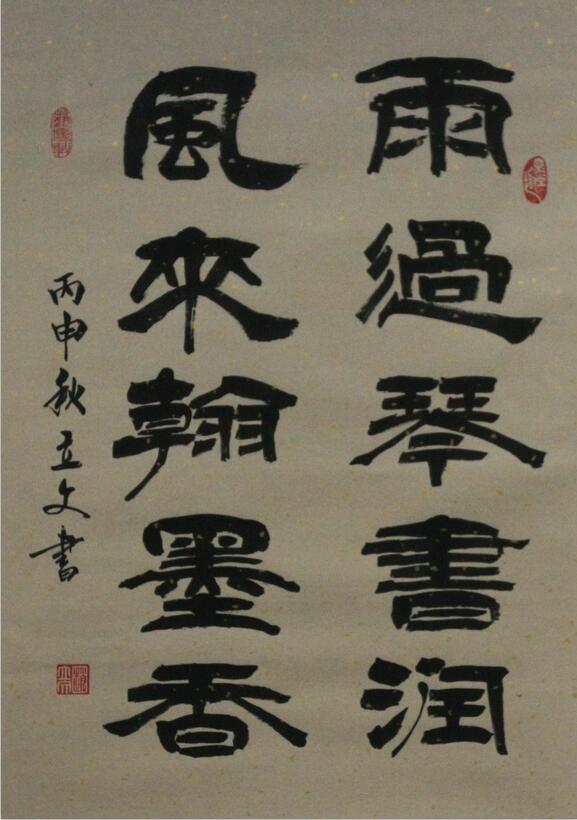 雨過琴書润
風來翰墨香
丙申秋立文書